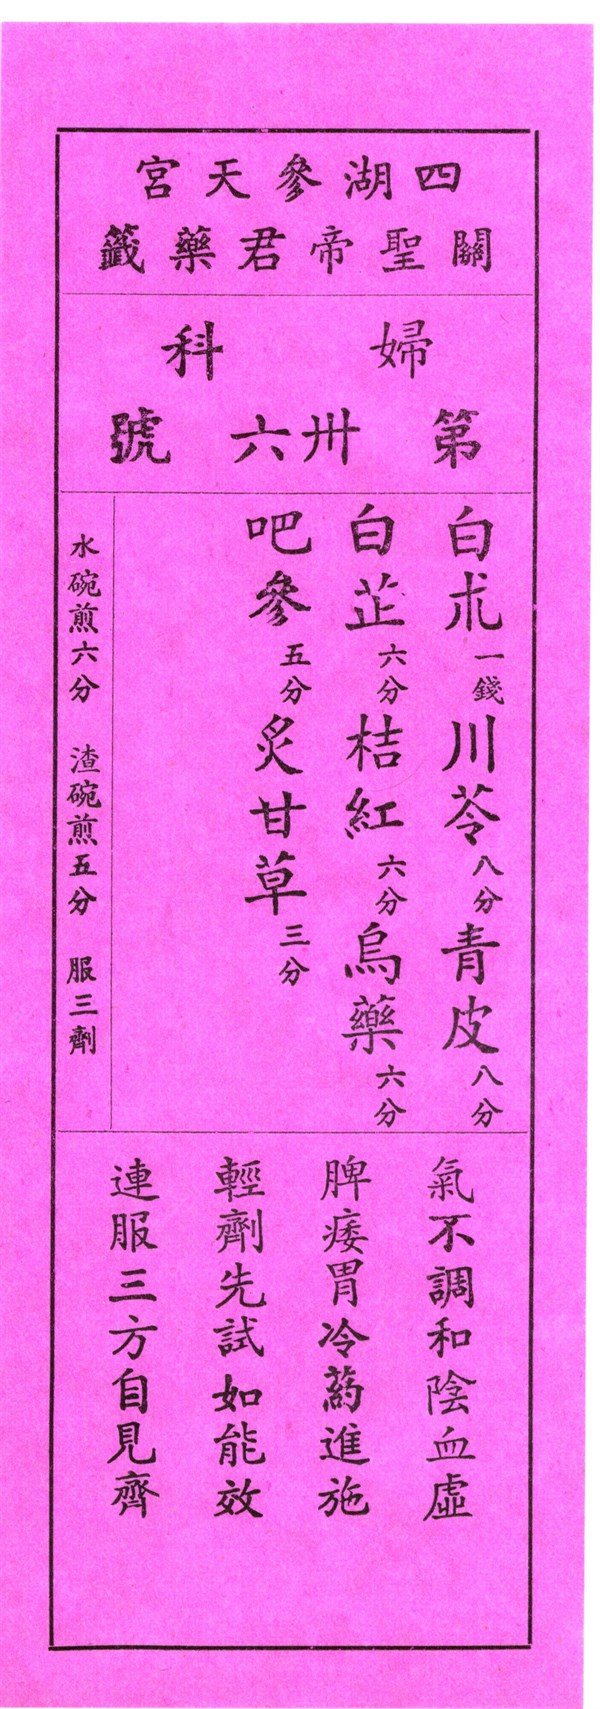 四湖參天宮
關聖帝君藥籤
婦科
第卅六號
白朮一錢川苓八分青皮八分
白芷六分桔紅六分烏藥六分
吧參五分炙甘草三分
水碗煎六分 渣碗煎五分 服三劑
氣不調和陰血虛
脾痿胃冷葯進施
輕劑先試如能效
連服三方自見齊